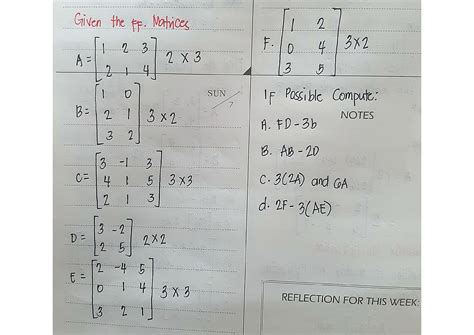 Given the ff. Matrices
A = [1 2 3
2 1 4] 2 x 3
B = [1 0
2 1
3 2] 3 x 2
C = [3 -1 3
4 1 5
2 1 3] 3x3
D = [3 -2
2 5] 2x2
E = [2 -4 5
0 1 4
3 2 1] 3 x 3
SUN
7
F. [1 2
0 4
3 5] 3x2
IF Possible Compute:
NOTES
A. FD - 3b
B. AB - 2D
C. 3(2A) and 6A
d. 2F - 3(AE)
REFLECTION FOR THIS WEEK: